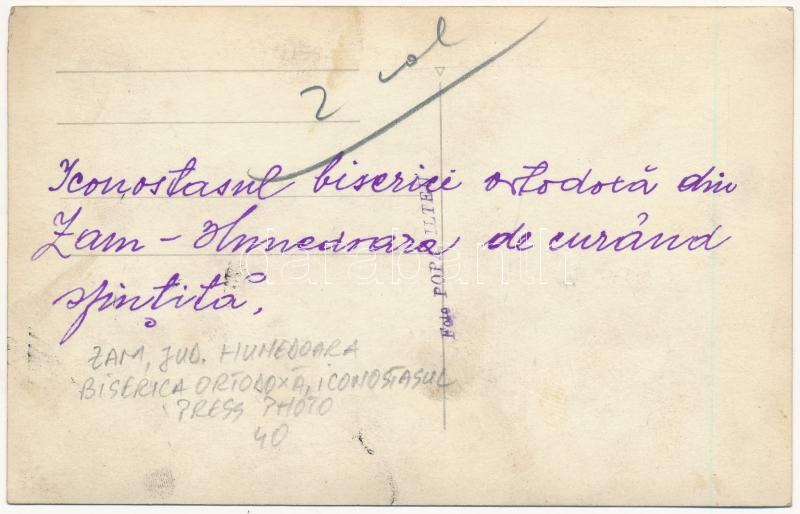 2 col
Iconostasul bisericii ortodoxă din
Zam - Hunedoara de curând
sfințită.
Foto POPA ILTEN
ZAM, JUD. HUNEDOARA
BISERICA ORTODOXĂ, ICONOSTASUL
PRESS PHOTO
40
darabanth